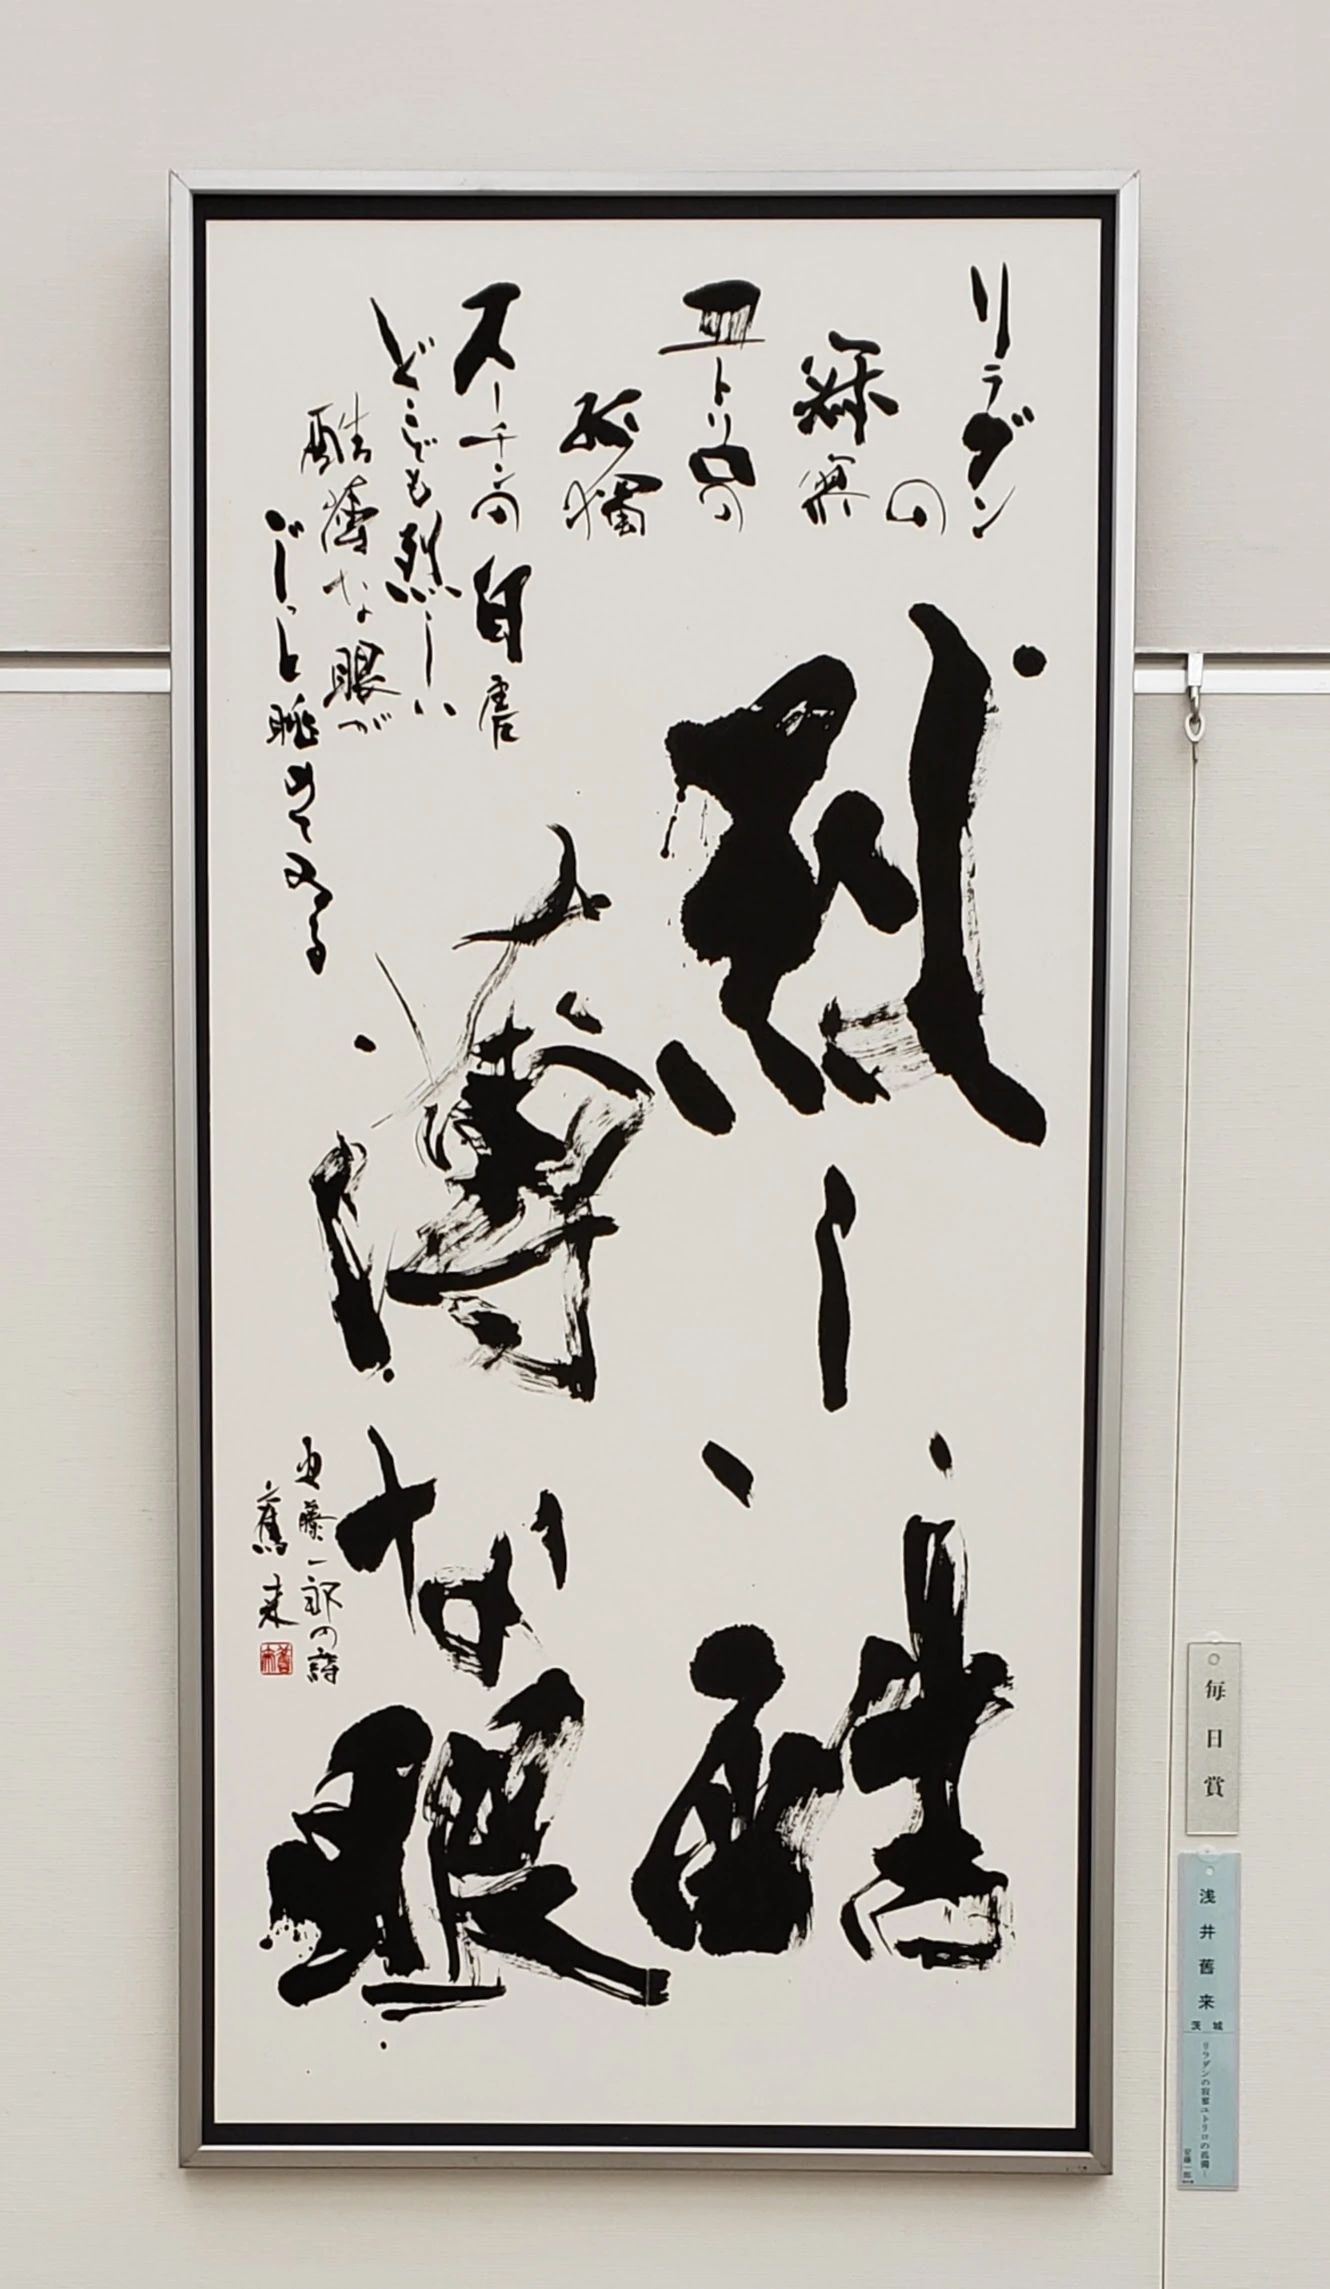 リラダン
の
寂寞
ユトリロの
孤獨
スーチンの自虐
どこでも烈しい
酷薄な眼が
じーっと眺めてゐる
烈しい酷
薄な眼
安藤一郎の詩
舊来
毎日賞
浅井舊来
茨城
リラダンの寂寞ユトリロの孤獨―
安藤一郎